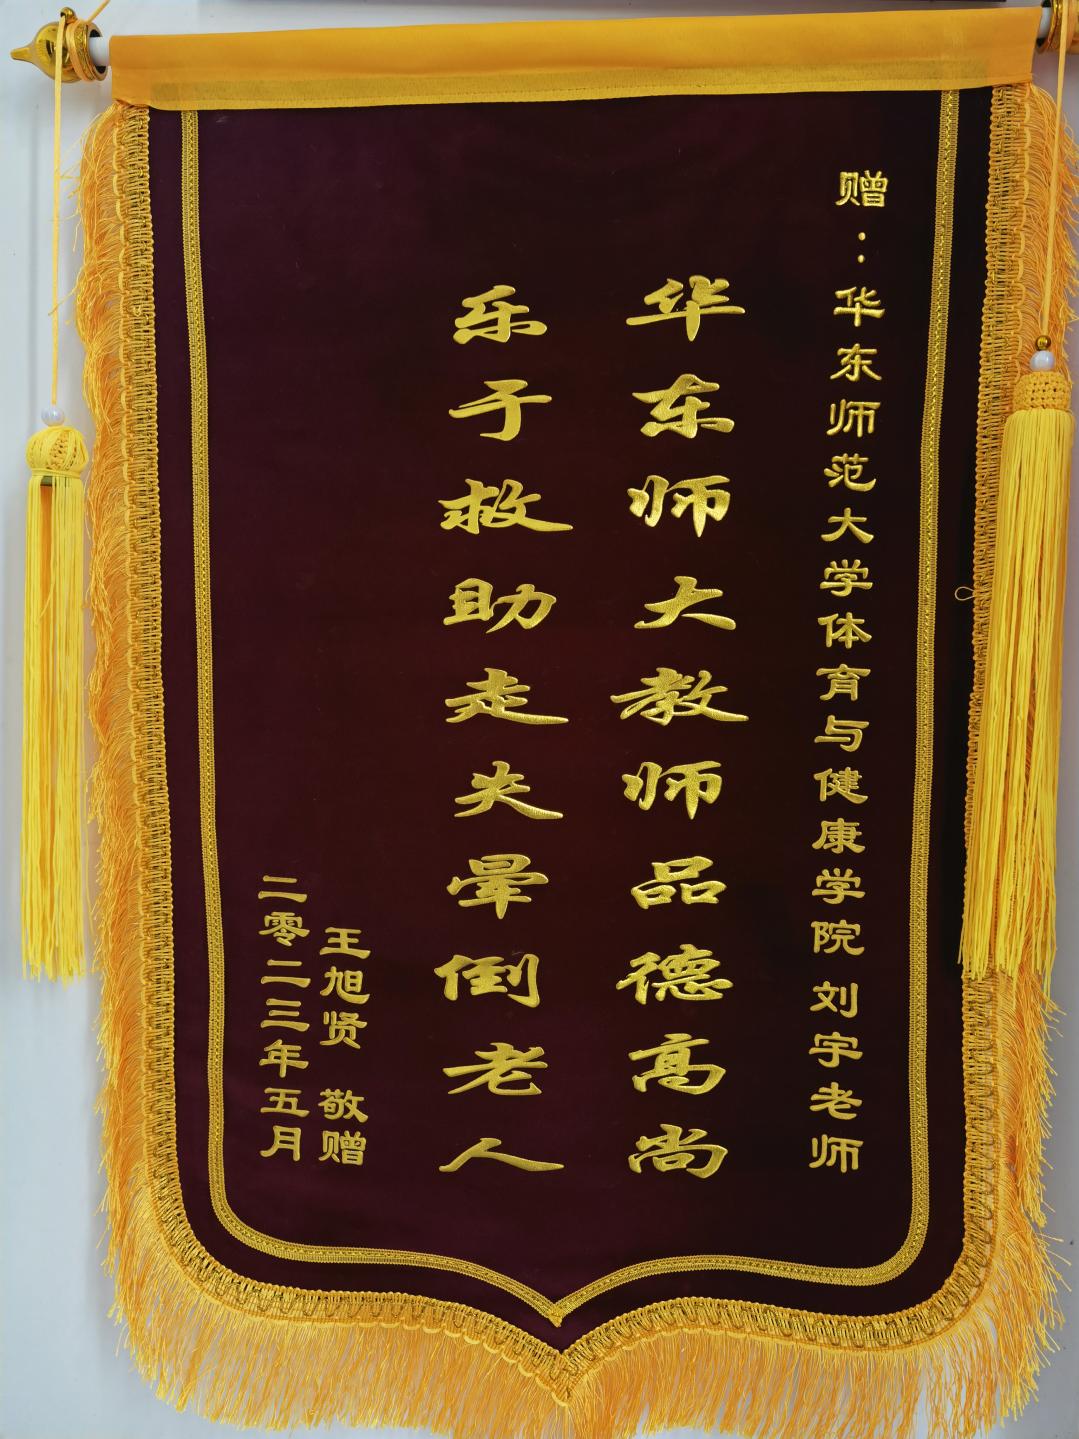 赠：华东师范大学体育与健康学院 刘宇老师
华东师大教师品德高尚
乐于救助走失晕倒老人
王旭贤 敬赠
二零二三年五月